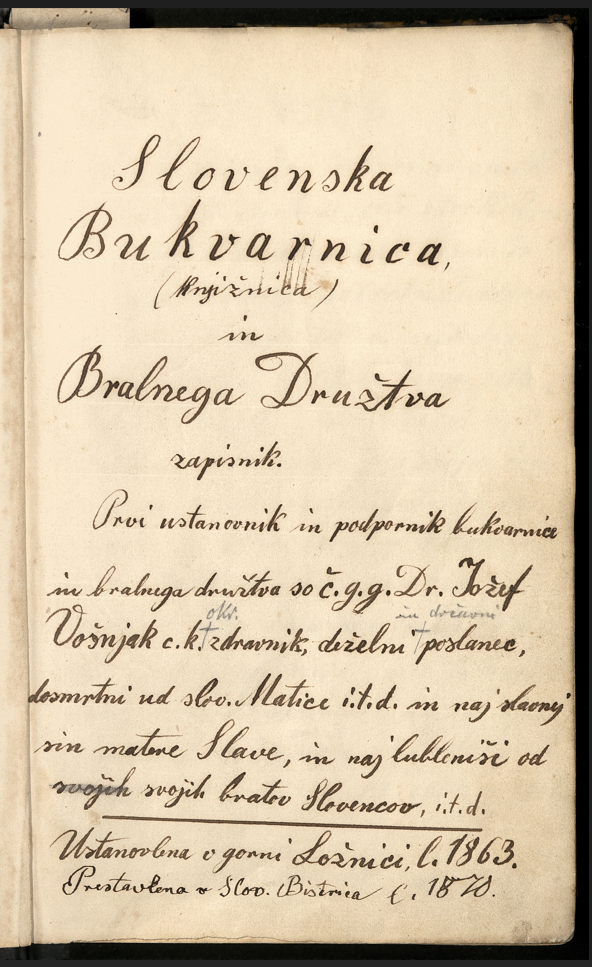 Slovenska
Bukvarnica,
(knjižnica)
in
Bralnega Družtva
zapisnik.
Prvi ustanovnik in podpornik bukvarnice
in bralnega družtva so č.g.g. Dr. Jožef
okr. in državni
Vošnjak c.k. zdravnik, deželni poslanec,
dosmrtni ud slov. Matice i.t.d. in najslavnej
sin matere Slave, in najlubleniši od
svojih svojih bratov Slovencov, i.t.d.
Ustanovlena v gorni Ložnici, l. 1863.
Prestavlena v Slov. Bistrica l. 1870.